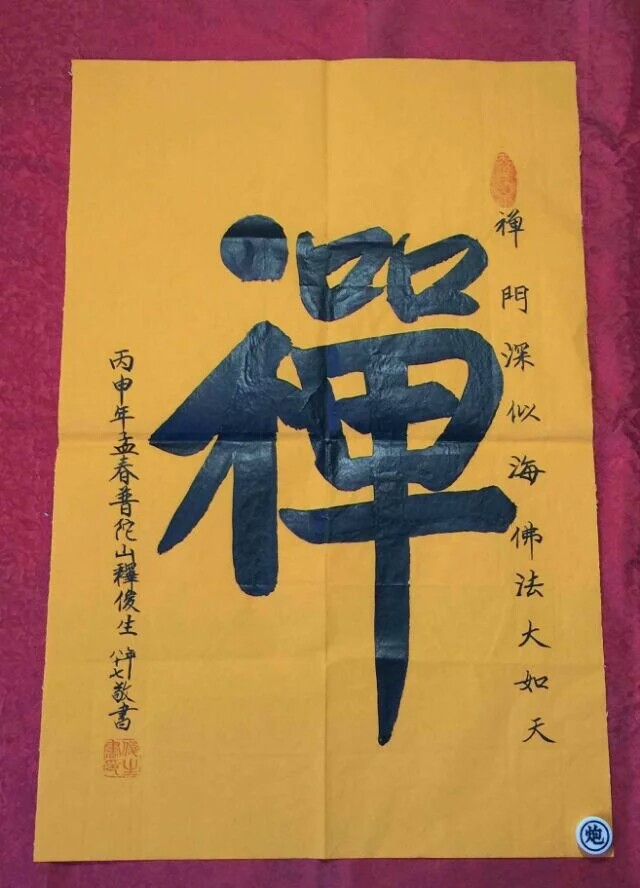 禪
禅門深似海佛法大如天
丙申年孟春普陀山釋俊生
八十七敬書
炮